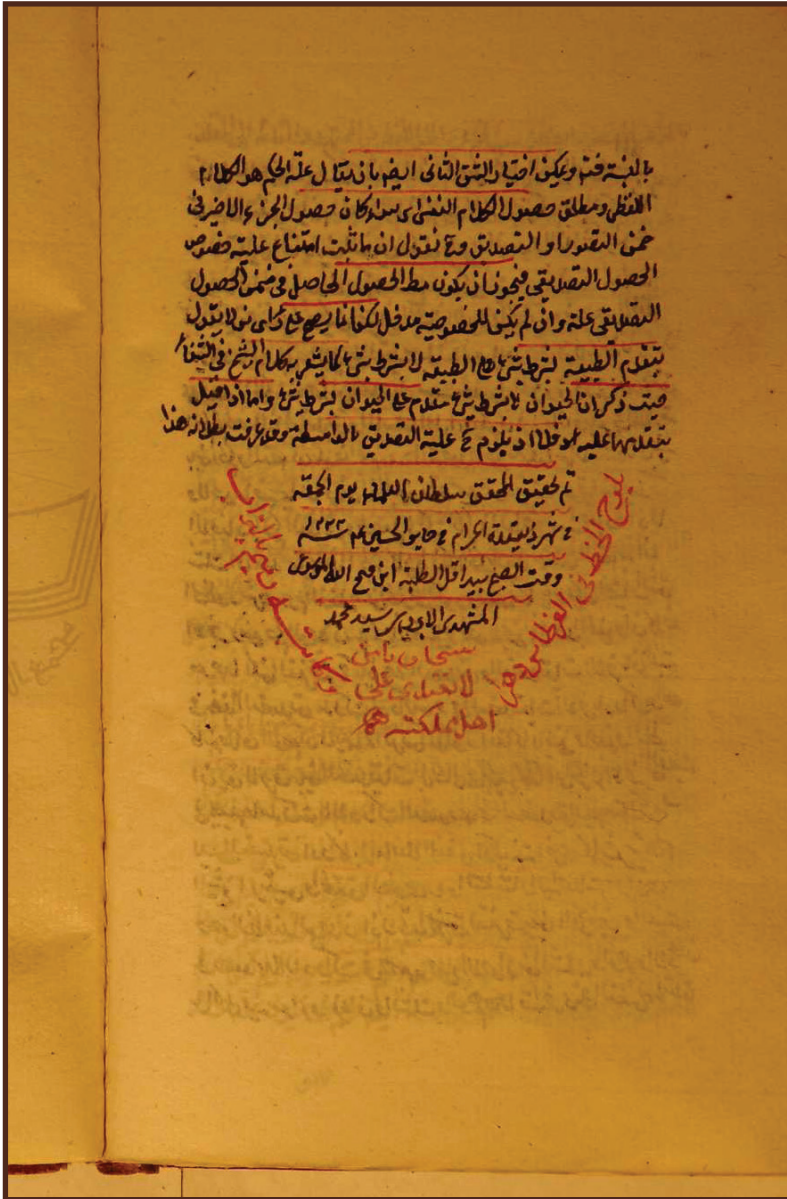 بالغنة فنه ويمكن اختيار الشق الثانى ايضم بان يقال علة الحكم هو الكلام
اللفظى ومطلق حصول الكلام النفسى اى سواء كان حصول الجزء الاخير فى
ضمن التصور او التصديق وح نقول ان ما ثبت امتناع علية خصوص
الحصول التصديقى فيجوز ان يكون مط الحصول الحاصل فى ضمن الحصول
التصديقى علة وان لم يكن للخصوصية مدخل لكن انما يصح على راى من لا يقول
بتقدم الطبيعة بشرط شئ على الطبيعة لا بشرط شئ كما يشعر به كلام الشيخ فى الشفا
حيث ذكر ان الحيوان لا بشرط شئ متقدم على الحيوان بشرط شئ واما اذا قيل
بتقدمها عليه فلا اذ يلزم ح علية التصديق بالواسطة وقد عرفت بطلانه هذا
تم تحقيق المحقق سلطان العلماء يوم الجمعه
فى شهر ذيقعدة الحرام فى حاير الحسين ع سنه ١٢٢٣
وقت الصبح بيد اقل الطلبة ابن فتح الله الموسوى
المشهدى سيد محمد
يلوح الخط فى القرطاس دهرا
وكاتبه رميم فى التراب
سبحان من
لا يعتدى على
اهل مملكته